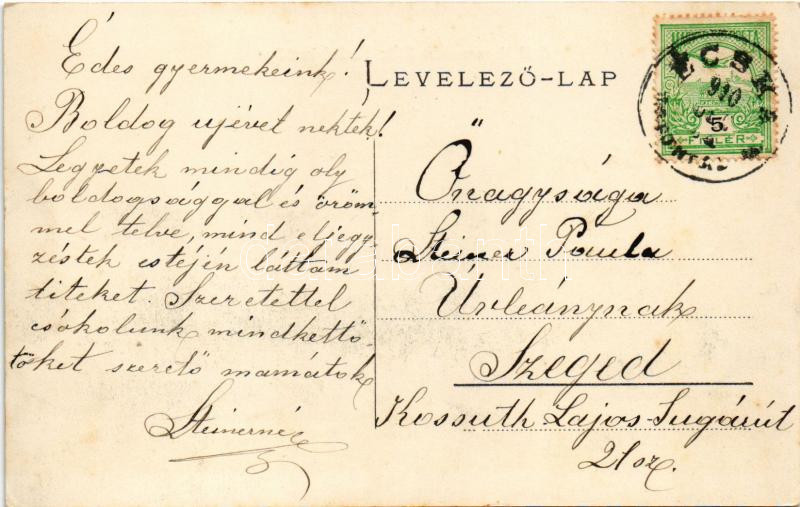 Édes gyermekeink!
Boldog ujévet nektek!
Legyetek mindig oly
boldogsággal és öröm-
mel telve, mind eljegy-
zéstek estéjén láttam
titeket. Szeretettel
csókolunk mindkettő-
töket szerető mamátok
Steinerné
LEVELEZŐ-LAP
Őnagysága
Steiner Paula
Úrleánynak
Szeged
Kossuth Lajos-Sugárút
21 sz.
ÉCSKA
910
5
FILLÉR